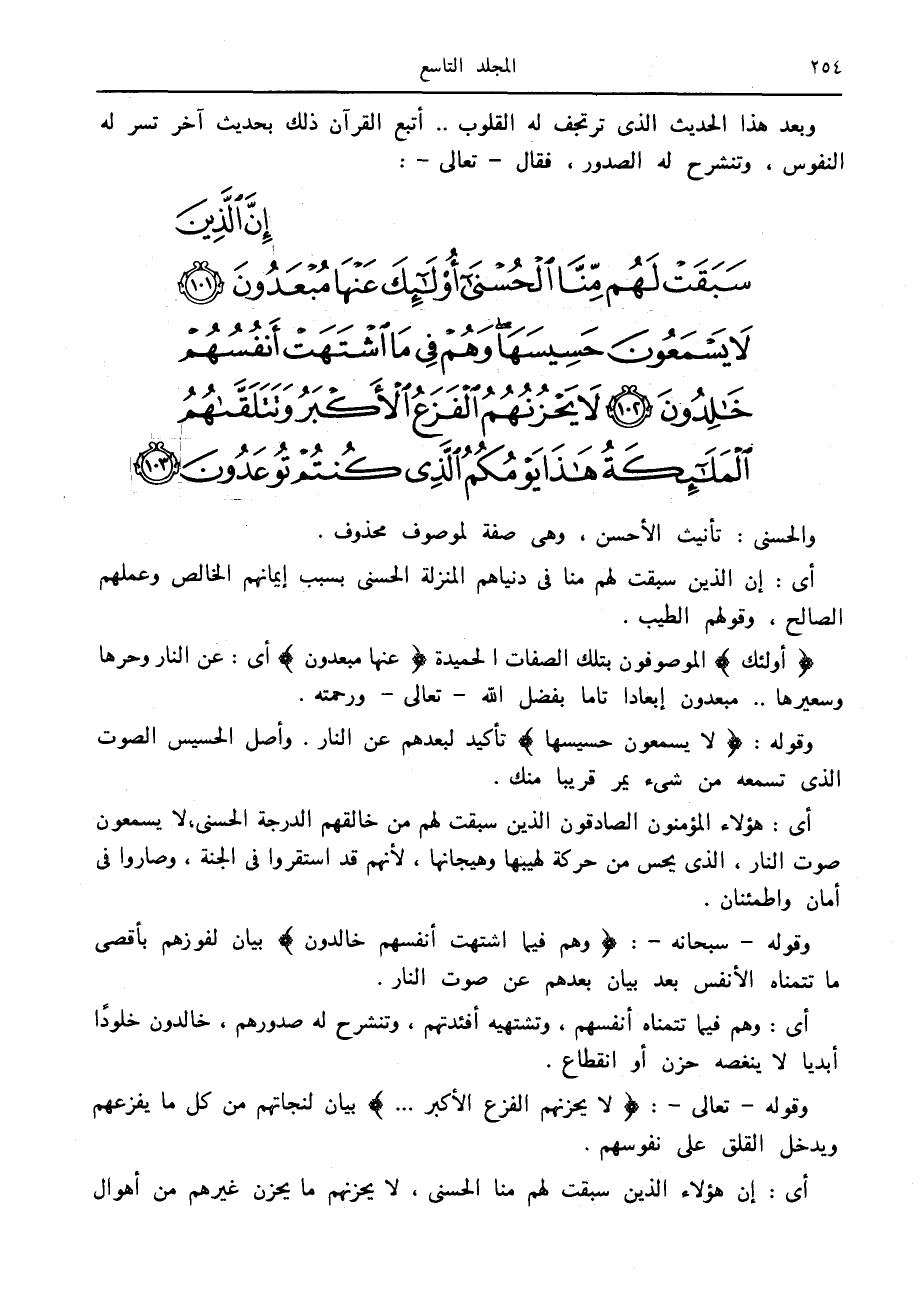 ٢٥٤ المجلد التاسع
وبعد هذا الحديث الذى ترتجف له القلوب .. أتبع القرآن ذلك بحديث آخر تسر له
النفوس ، وتنشرح له الصدور ، فقال – تعالى – :
إِنَّ ٱلَّذِينَ
سَبَقَتْ لَهُم مِّنَّا ٱلْحُسْنَىٰٓ أُو۟لَٰٓئِكَ عَنْهَا مُبْعَدُونَ ﴿١٠١﴾
لَا يَسْمَعُونَ حَسِيسَهَا ۖ وَهُمْ فِى مَا ٱشْتَهَتْ أَنفُسُهُمْ
خَٰلِدُونَ ﴿١٠٢﴾ لَا يَحْزُنُهُمُ ٱلْفَزَعُ ٱلْأَكْبَرُ وَتَتَلَقَّىٰهُمُ
ٱلْمَلَٰٓئِكَةُ هَٰذَا يَوْمُكُمُ ٱلَّذِى كُنتُمْ تُوعَدُونَ ﴿١٠٣﴾
والحسنى : تأنيث الأحسن ، وهى صفة لموصوف محذوف .
أى : إن الذين سبقت لهم منا فى دنياهم المنزلة الحسنى بسبب إيمانهم الخالص وعملهم
الصالح ، وقولهم الطيب .
﴿ أولئك ﴾ الموصوفون بتلك الصفات الحميدة ﴿ عنها مبعدون ﴾ أى : عن النار وحرها
وسعيرها .. مبعدون إبعادا تاما بفضل الله – تعالى – ورحمته .
وقوله : ﴿ لا يسمعون حسيسها ﴾ تأكيد لبعدهم عن النار . وأصل الحسيس الصوت
الذى تسمعه من شىء يمر قريبا منك .
أى : هؤلاء المؤمنون الصادقون الذين سبقت لهم من خالقهم الدرجة الحسنى،لا يسمعون
صوت النار ، الذى يحس من حركة لهيبها وهيجانها ، لأنهم قد استقروا فى الجنة ، وصاروا فى
أمان واطمئنان .
وقوله – سبحانه – : ﴿ وهم فيما اشتهت أنفسهم خالدون ﴾ بيان لفوزهم بأقصى
ما تتمناه الأنفس بعد بيان بعدهم عن صوت النار .
أى : وهم فيما تتمناه أنفسهم ، وتشتهيه أفئدتهم ، وتنشرح له صدورهم ، خالدون خلودًا
أبديا لا ينغصه حزن أو انقطاع .
وقوله – تعالى – : ﴿ لا يحزنهم الفزع الأكبر ... ﴾ بيان لنجاتهم من كل ما يفزعهم
ويدخل القلق على نفوسهم .
أى : إن هؤلاء الذين سبقت لهم منا الحسنى ، لا يحزنهم ما يحزن غيرهم من أهوال